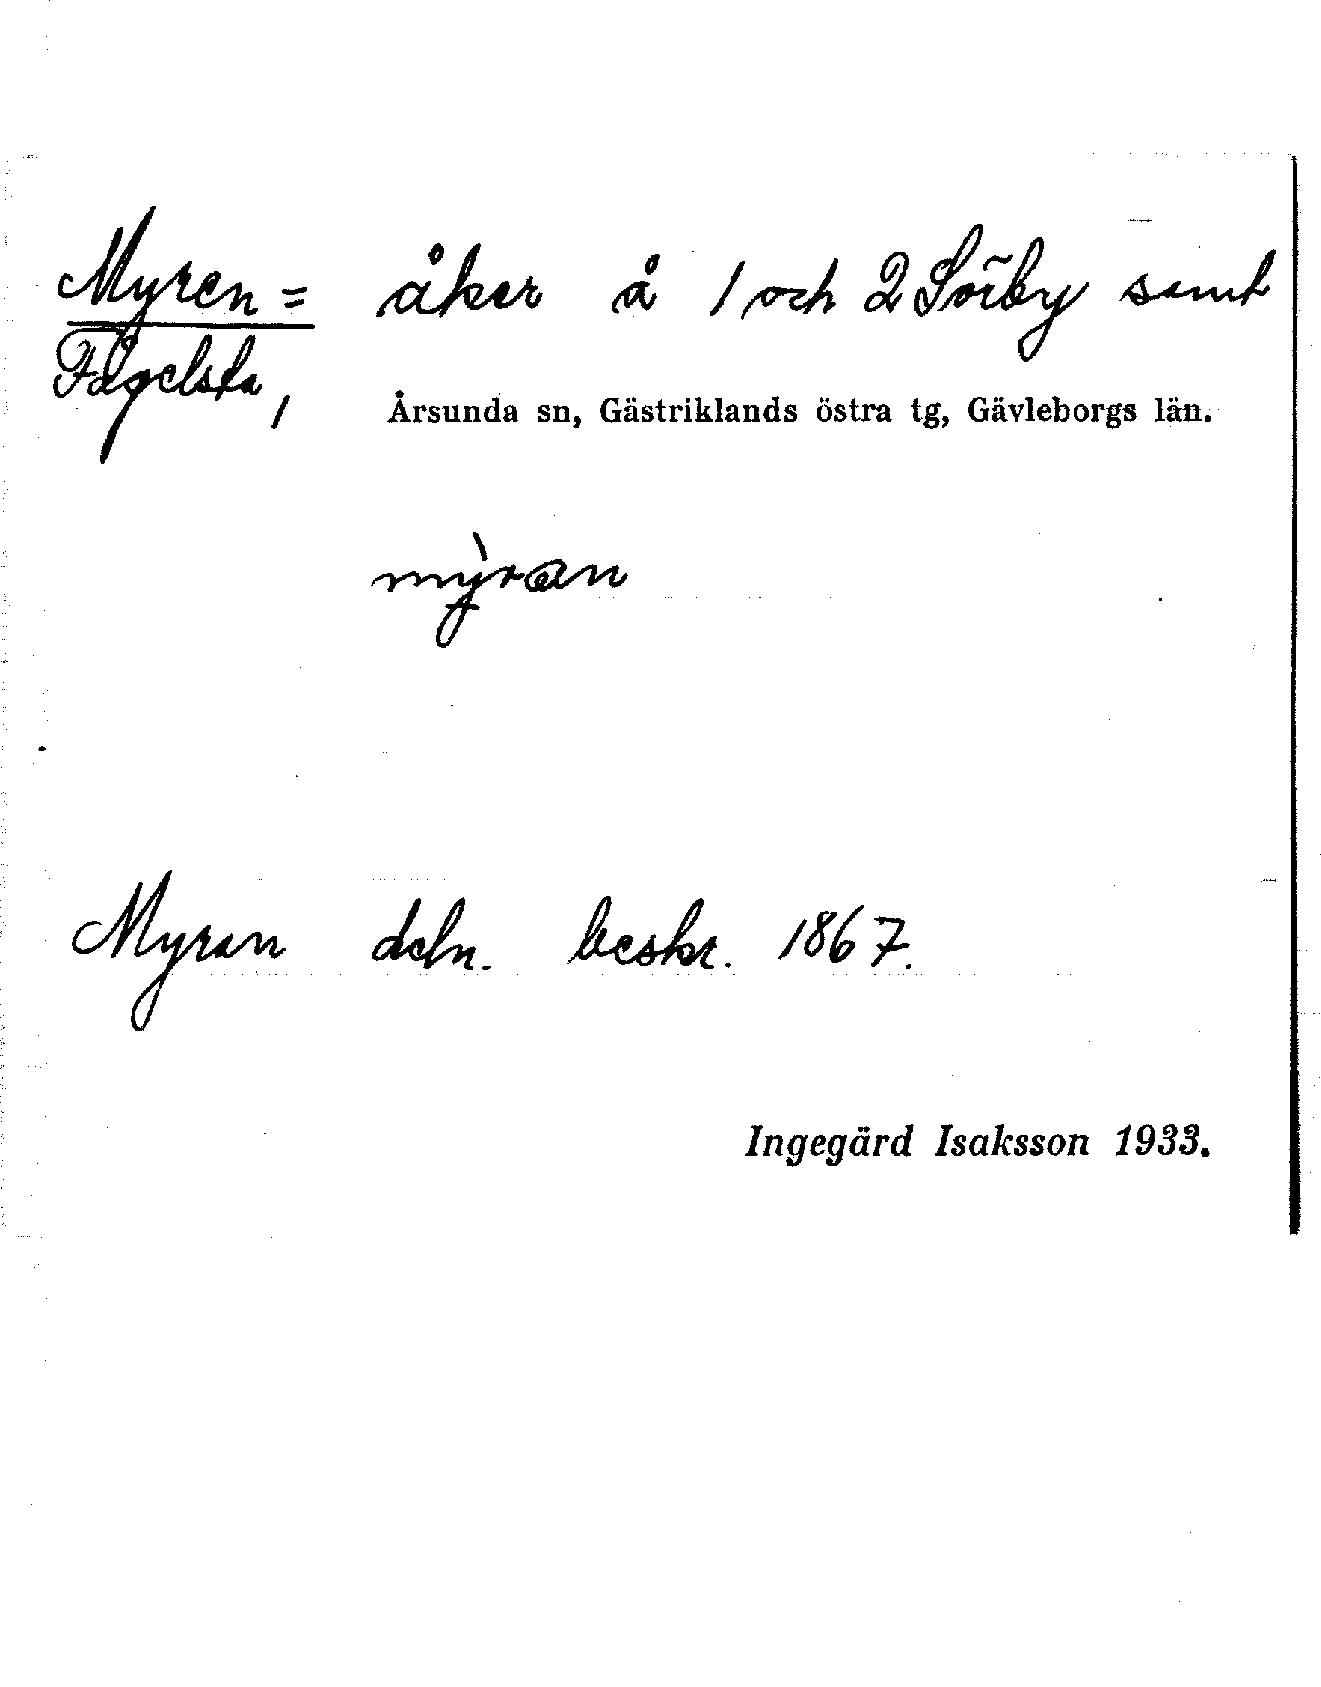 Myren = åker å 1 och 2 Sörby samt
Fågelsta,
Årsunda sn, Gästriklands östra tg, Gävleborgs län.
mỳran
Myran deln. beskr. 1867.
Ingegärd Isaksson 1933.